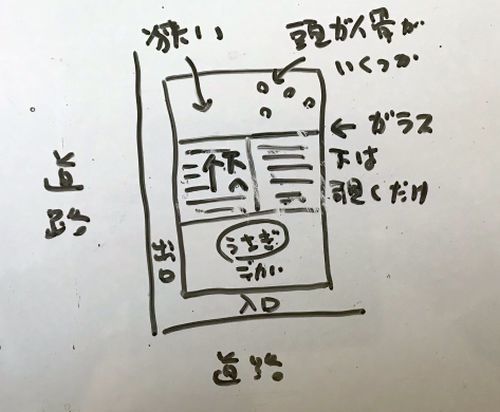 狭い
頭がい骨が
いくつか
← ガラス
下は
覗くだけ
下へ
うさぎ
でかい
出口
入口
道路
道路